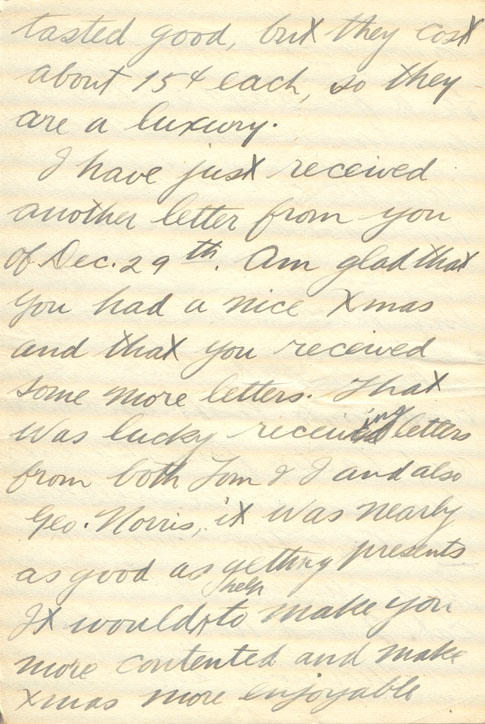 tasted good, but they cost
about 15¢ each, so they
are a luxury.
I have just received
another letter from you
of Dec. 29th. Am glad that
you had a nice Xmas
and that you received
some more letters. That
was lucky receiving letters
from both Tom & I and also
Geo. Norris, it was nearly
as good as getting presents
It would help to make you
more contented and make
Xmas more enjoyable